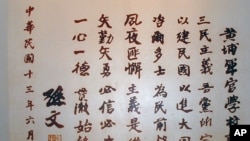 黃埔軍官學校
三民主義吾黨所宗
以建民國以進大同
咨爾多士為民前鋒
夙夜匪懈主義是
矢勤矢勇必信必
一心一德貫徹始
孫文
中華民國十三年六月